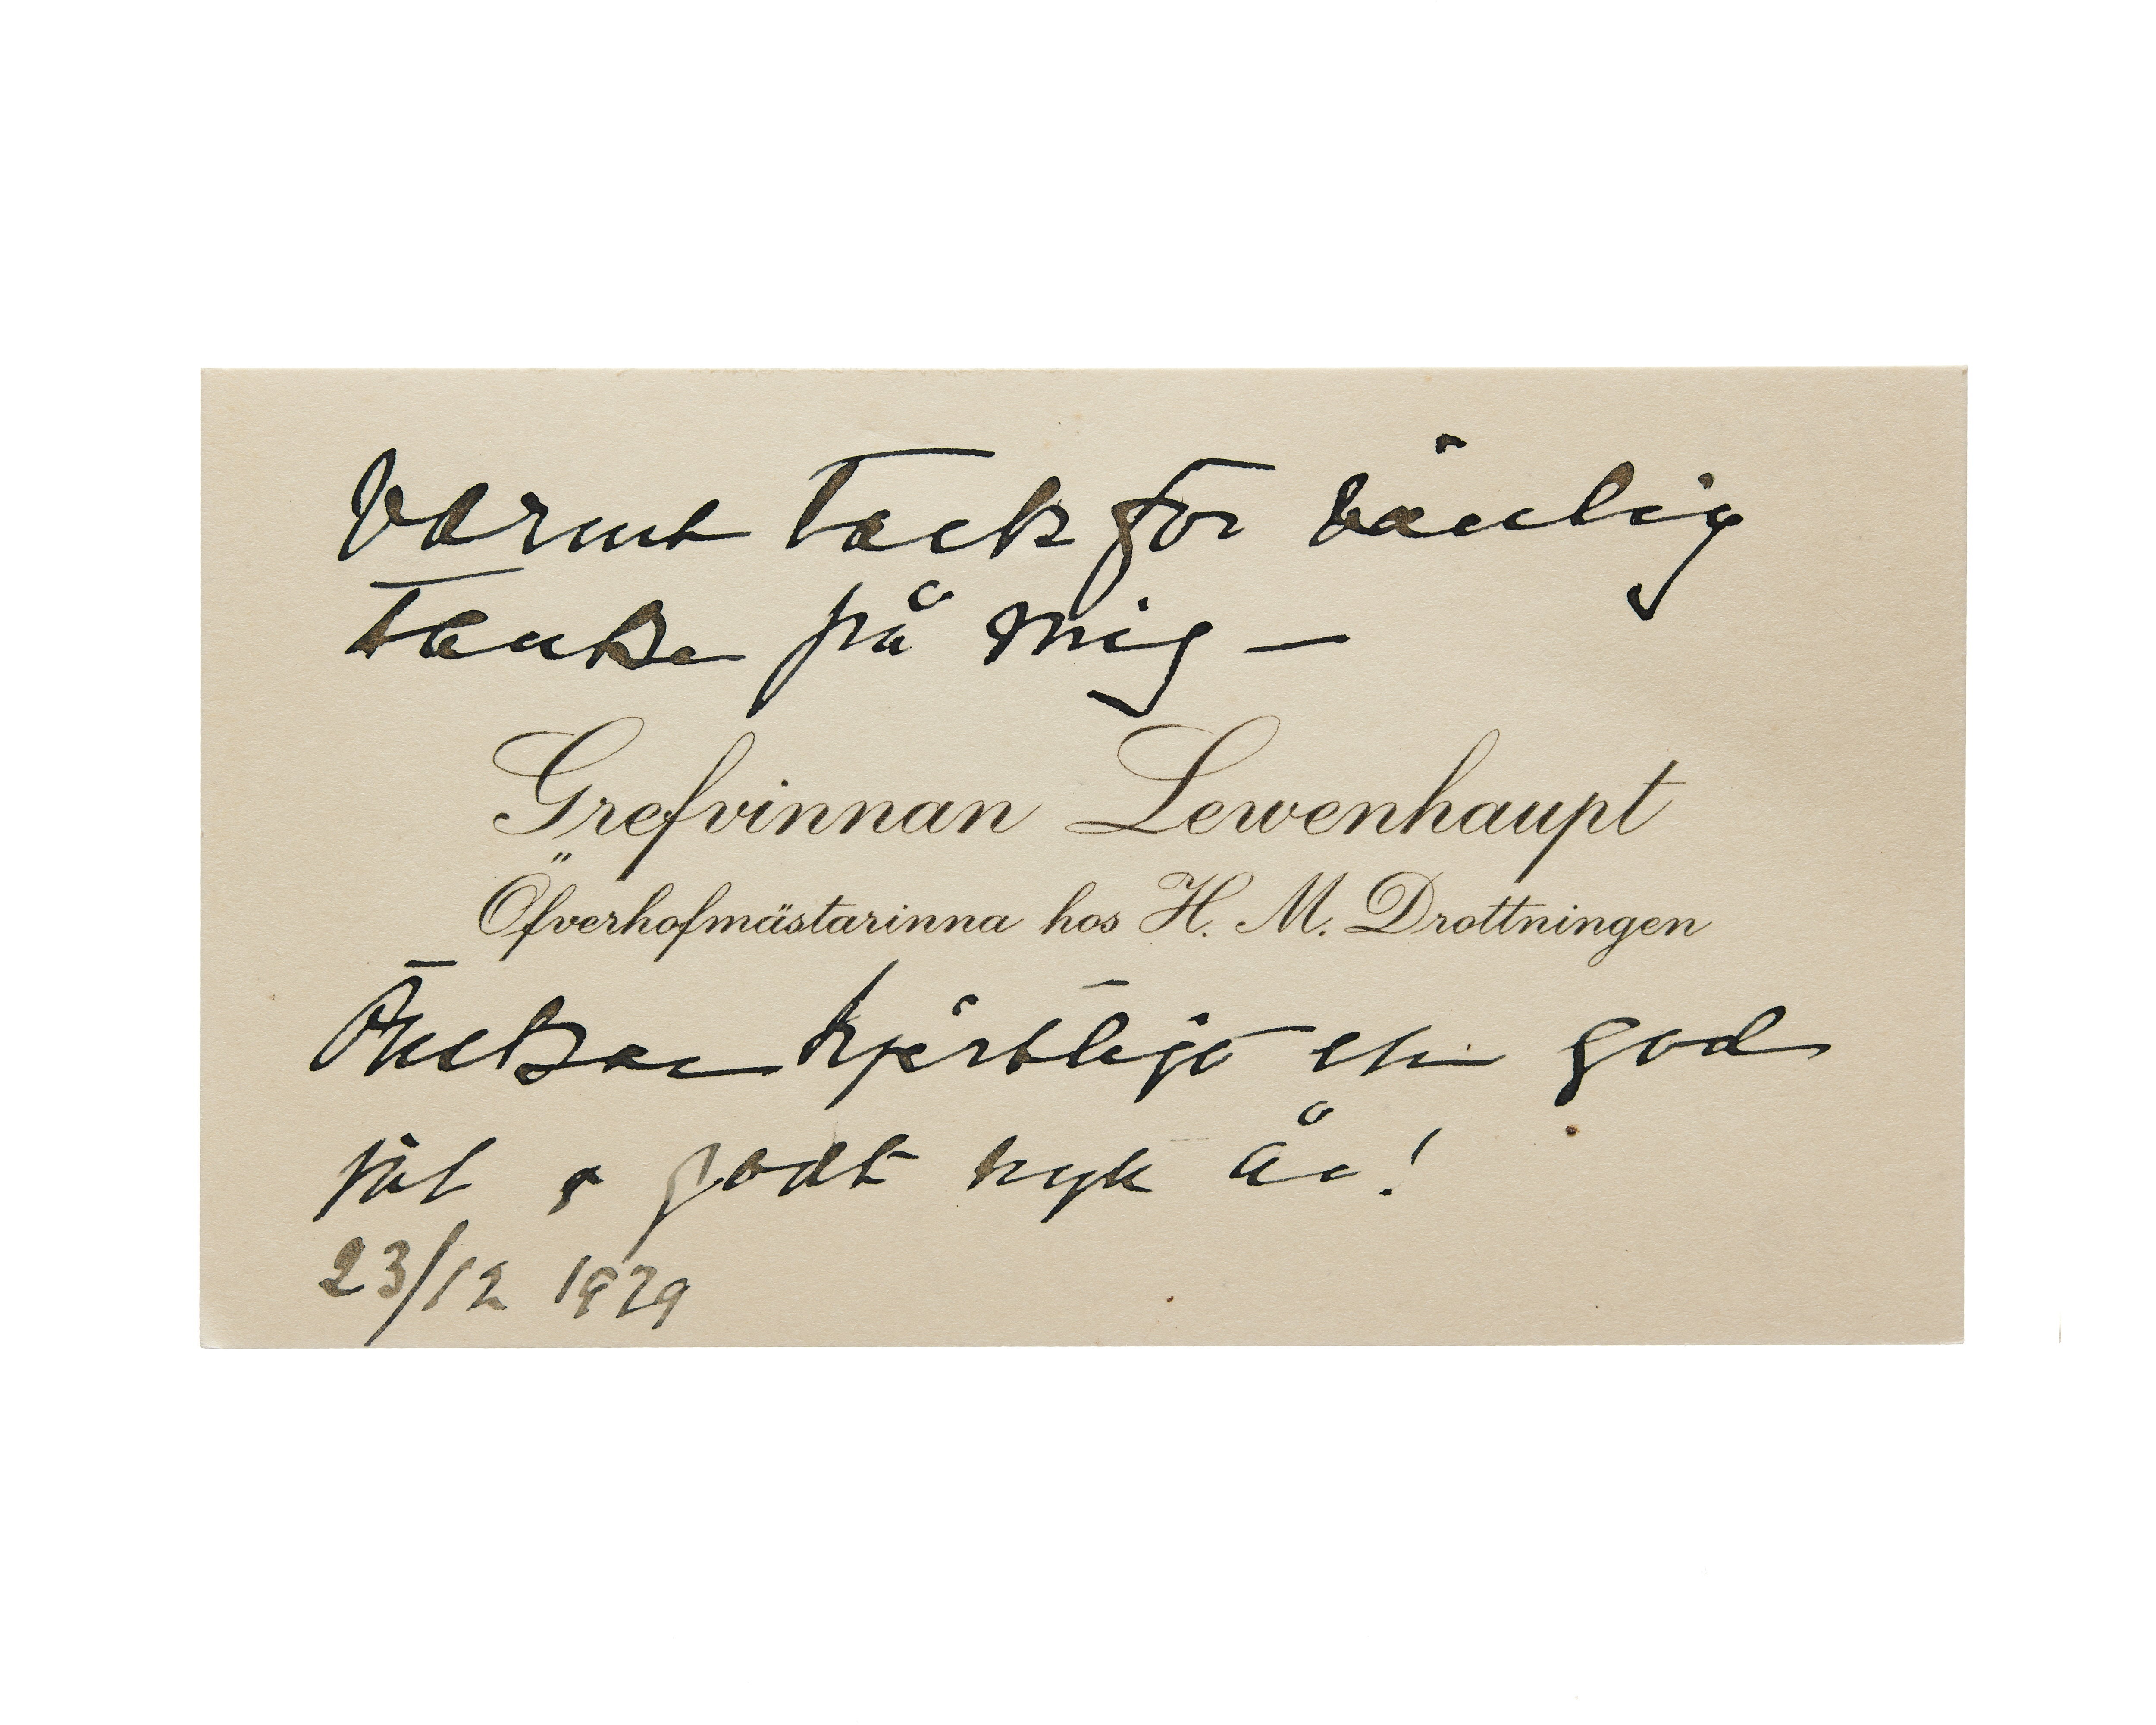 Varmt Tack för vänlig
Tanke på mig —
Grefvinnan Lewenhaupt
Öfverhofmästarinna hos H. M. Drottningen
Önskar hjärtligt en god
jul o godt nytt år!
23/12 1929